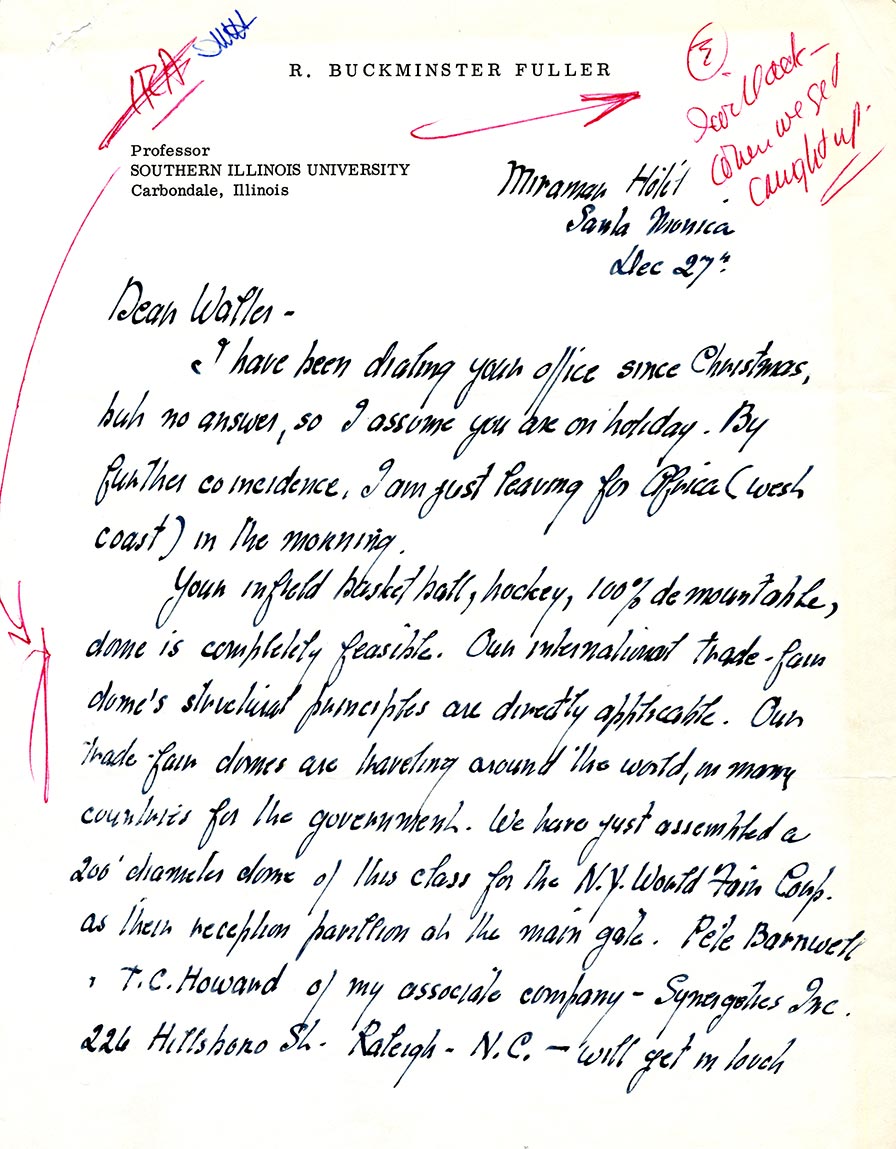 IRA
R. BUCKMINSTER FULLER
Professor
SOUTHERN ILLINOIS UNIVERSITY
Carbondale, Illinois
E
back-
when we get
caught up.
Miramar Hotel
Santa Monica
Dec 27th
Dear Walter -
I have been dialing your office since Christmas,
but no answer, so I assume you are on holiday. By
further coincidence, I am just leaving for Africa (west
coast) in the morning.
Your infield basket ball, hockey, 100% demountable,
dome is completely feasible. Our international trade-fair
dome's structural principles are directly applicable. Our
trade-fair domes are traveling around the world, in many
countries for the government. We have just assembled a
200' diameter dome of this class for the N.Y. World Fair Corp.
as their reception pavillion at the main gate. Pete Barnwell
, T.C. Howard of my associate company - Synergetics Inc.
226 Hillsboro St. Raleigh - N.C. - will get in touch